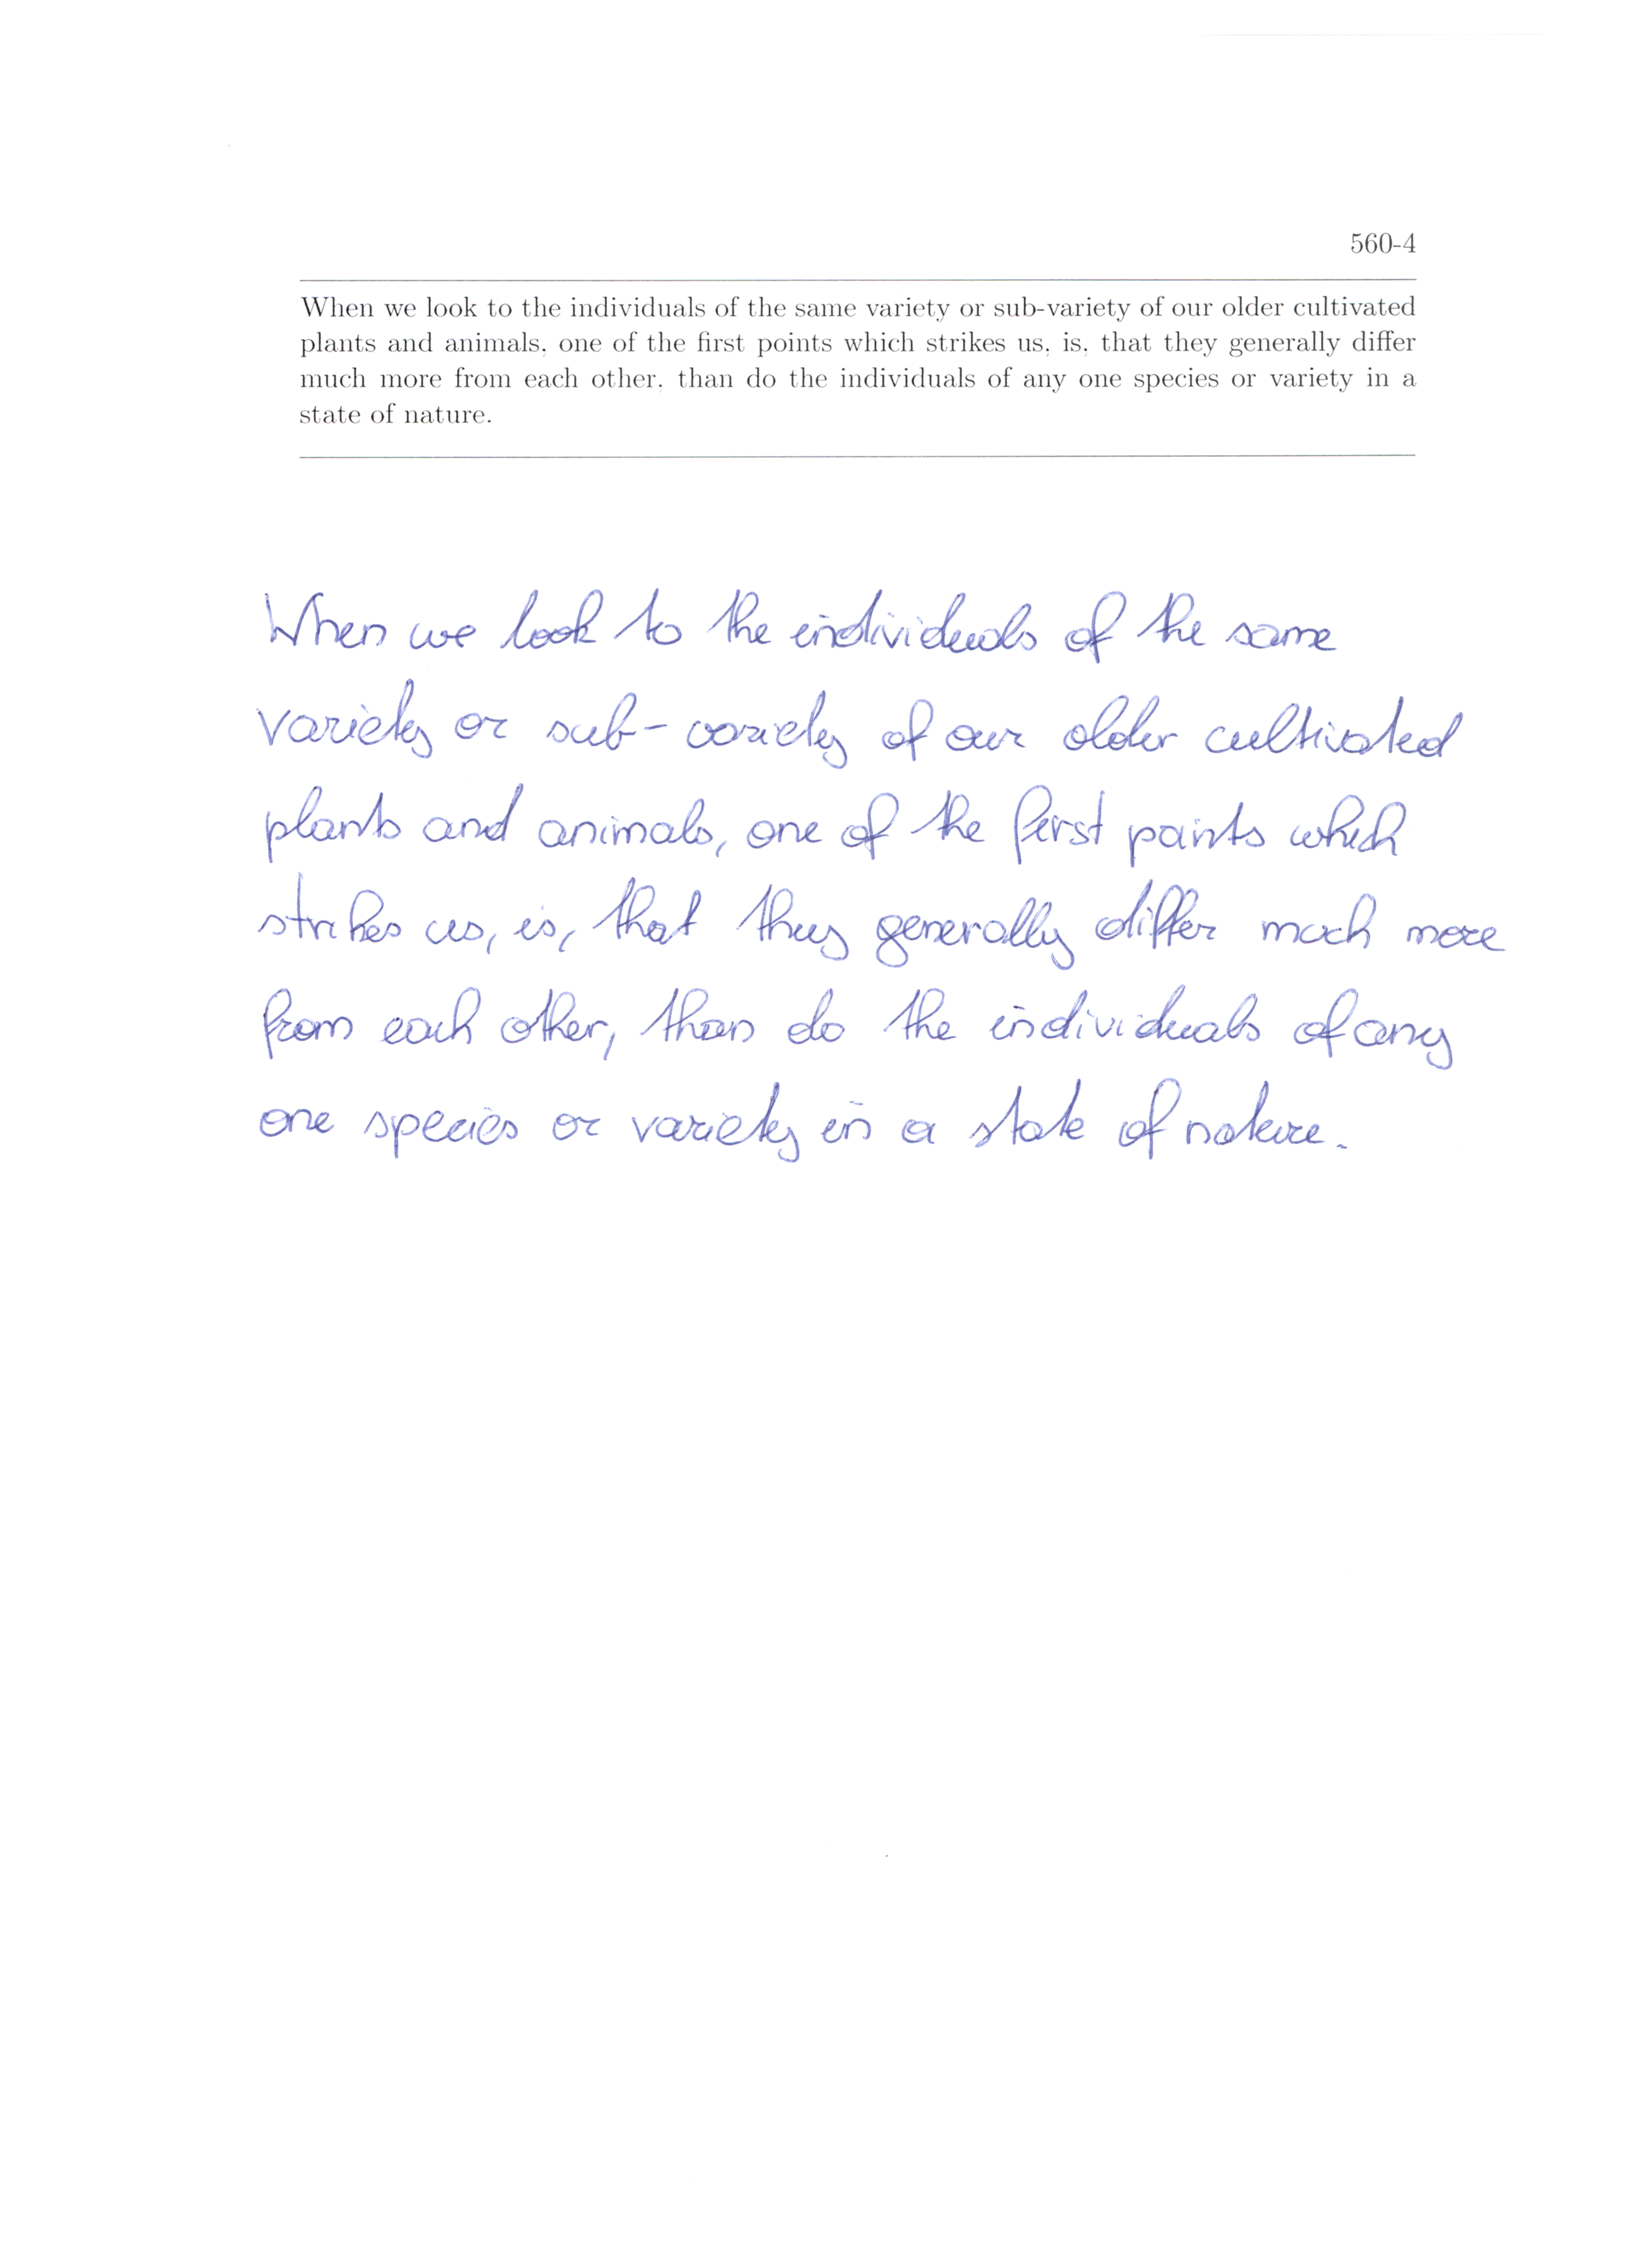 560-4
When we look to the individuals of the same variety or sub-variety of our older cultivated
plants and animals, one of the first points which strikes us, is, that they generally differ
much more from each other, than do the individuals of any one species or variety in a
state of nature.
When we look to the individuals of the same
variety or sub-variety of our older cultivated
plants and animals, one of the first points which
strikes us, is, that they generally differ much more
from each other, than do the individuals of any
one species or variety in a state of nature.